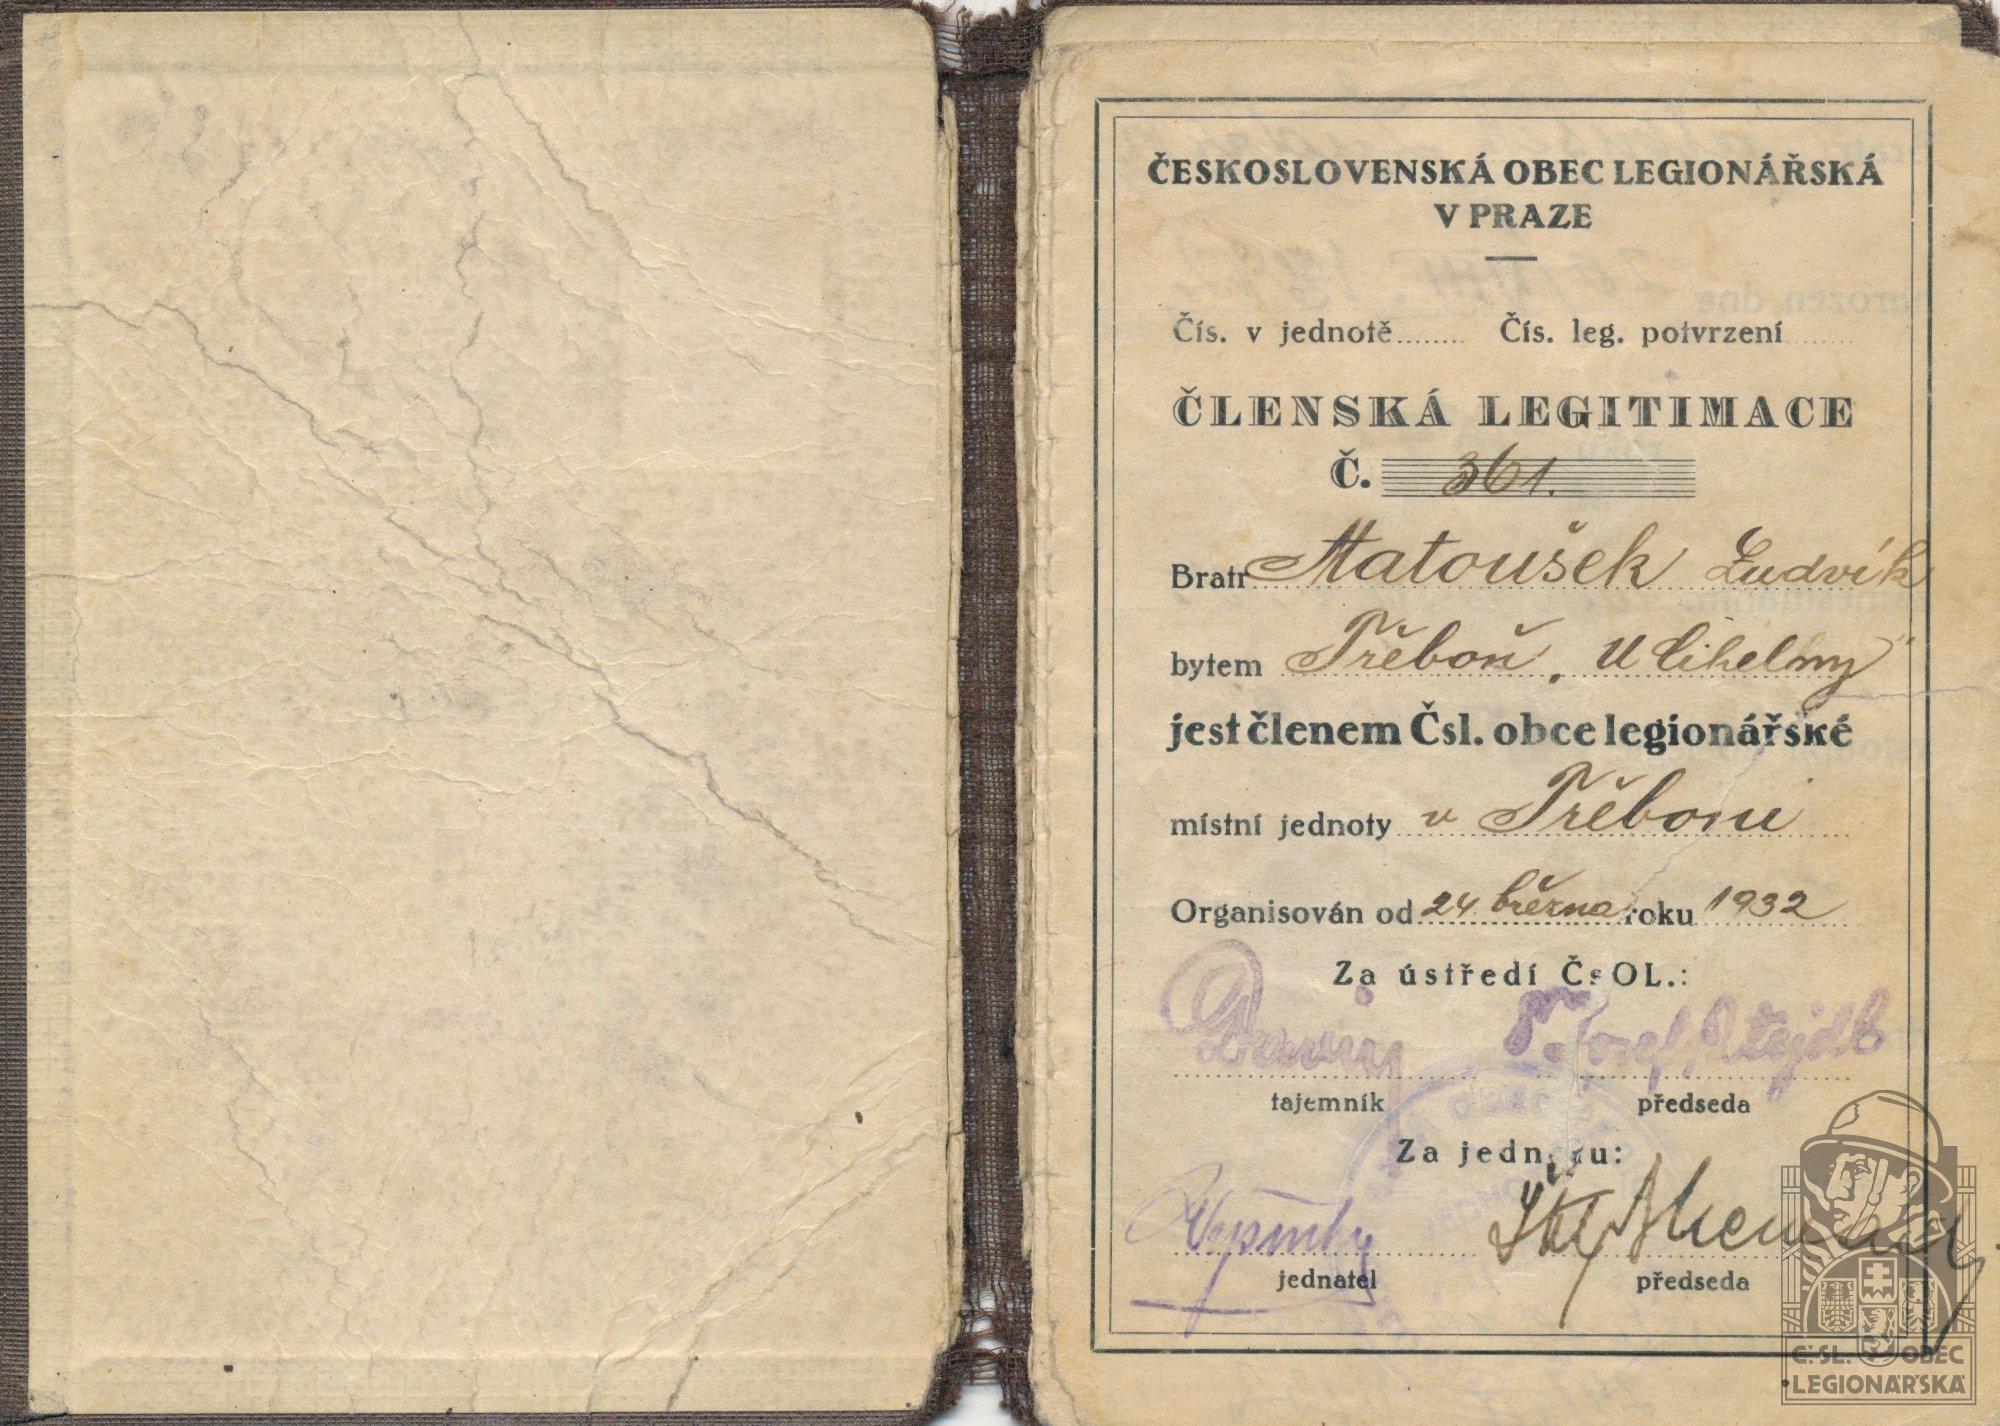 ČESKOSLOVENSKÁ OBEC LEGIONÁŘSKÁ
V PRAZE
Čís. v jednotě........ Čís. leg. potvrzení........
ČLENSKÁ LEGITIMACE
Č. 361.
Bratr Matoušek Ludvík
bytem Třeboň, „U Cihelny"
jest členem Čsl. obce legionářské
místní jednoty v Třeboni
Organisován od 24 března roku 1932
Za ústředí ČsOL.:
Josef
tajemník předseda
Za jednotu:
jednatel předseda
Č. SL. OBEC
LEGIONÁŘSKÁ